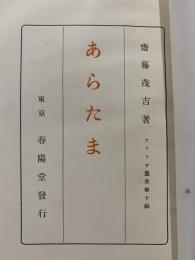 齋藤茂吉著
アララギ叢書第十編
あらたま
東京 春陽堂發行